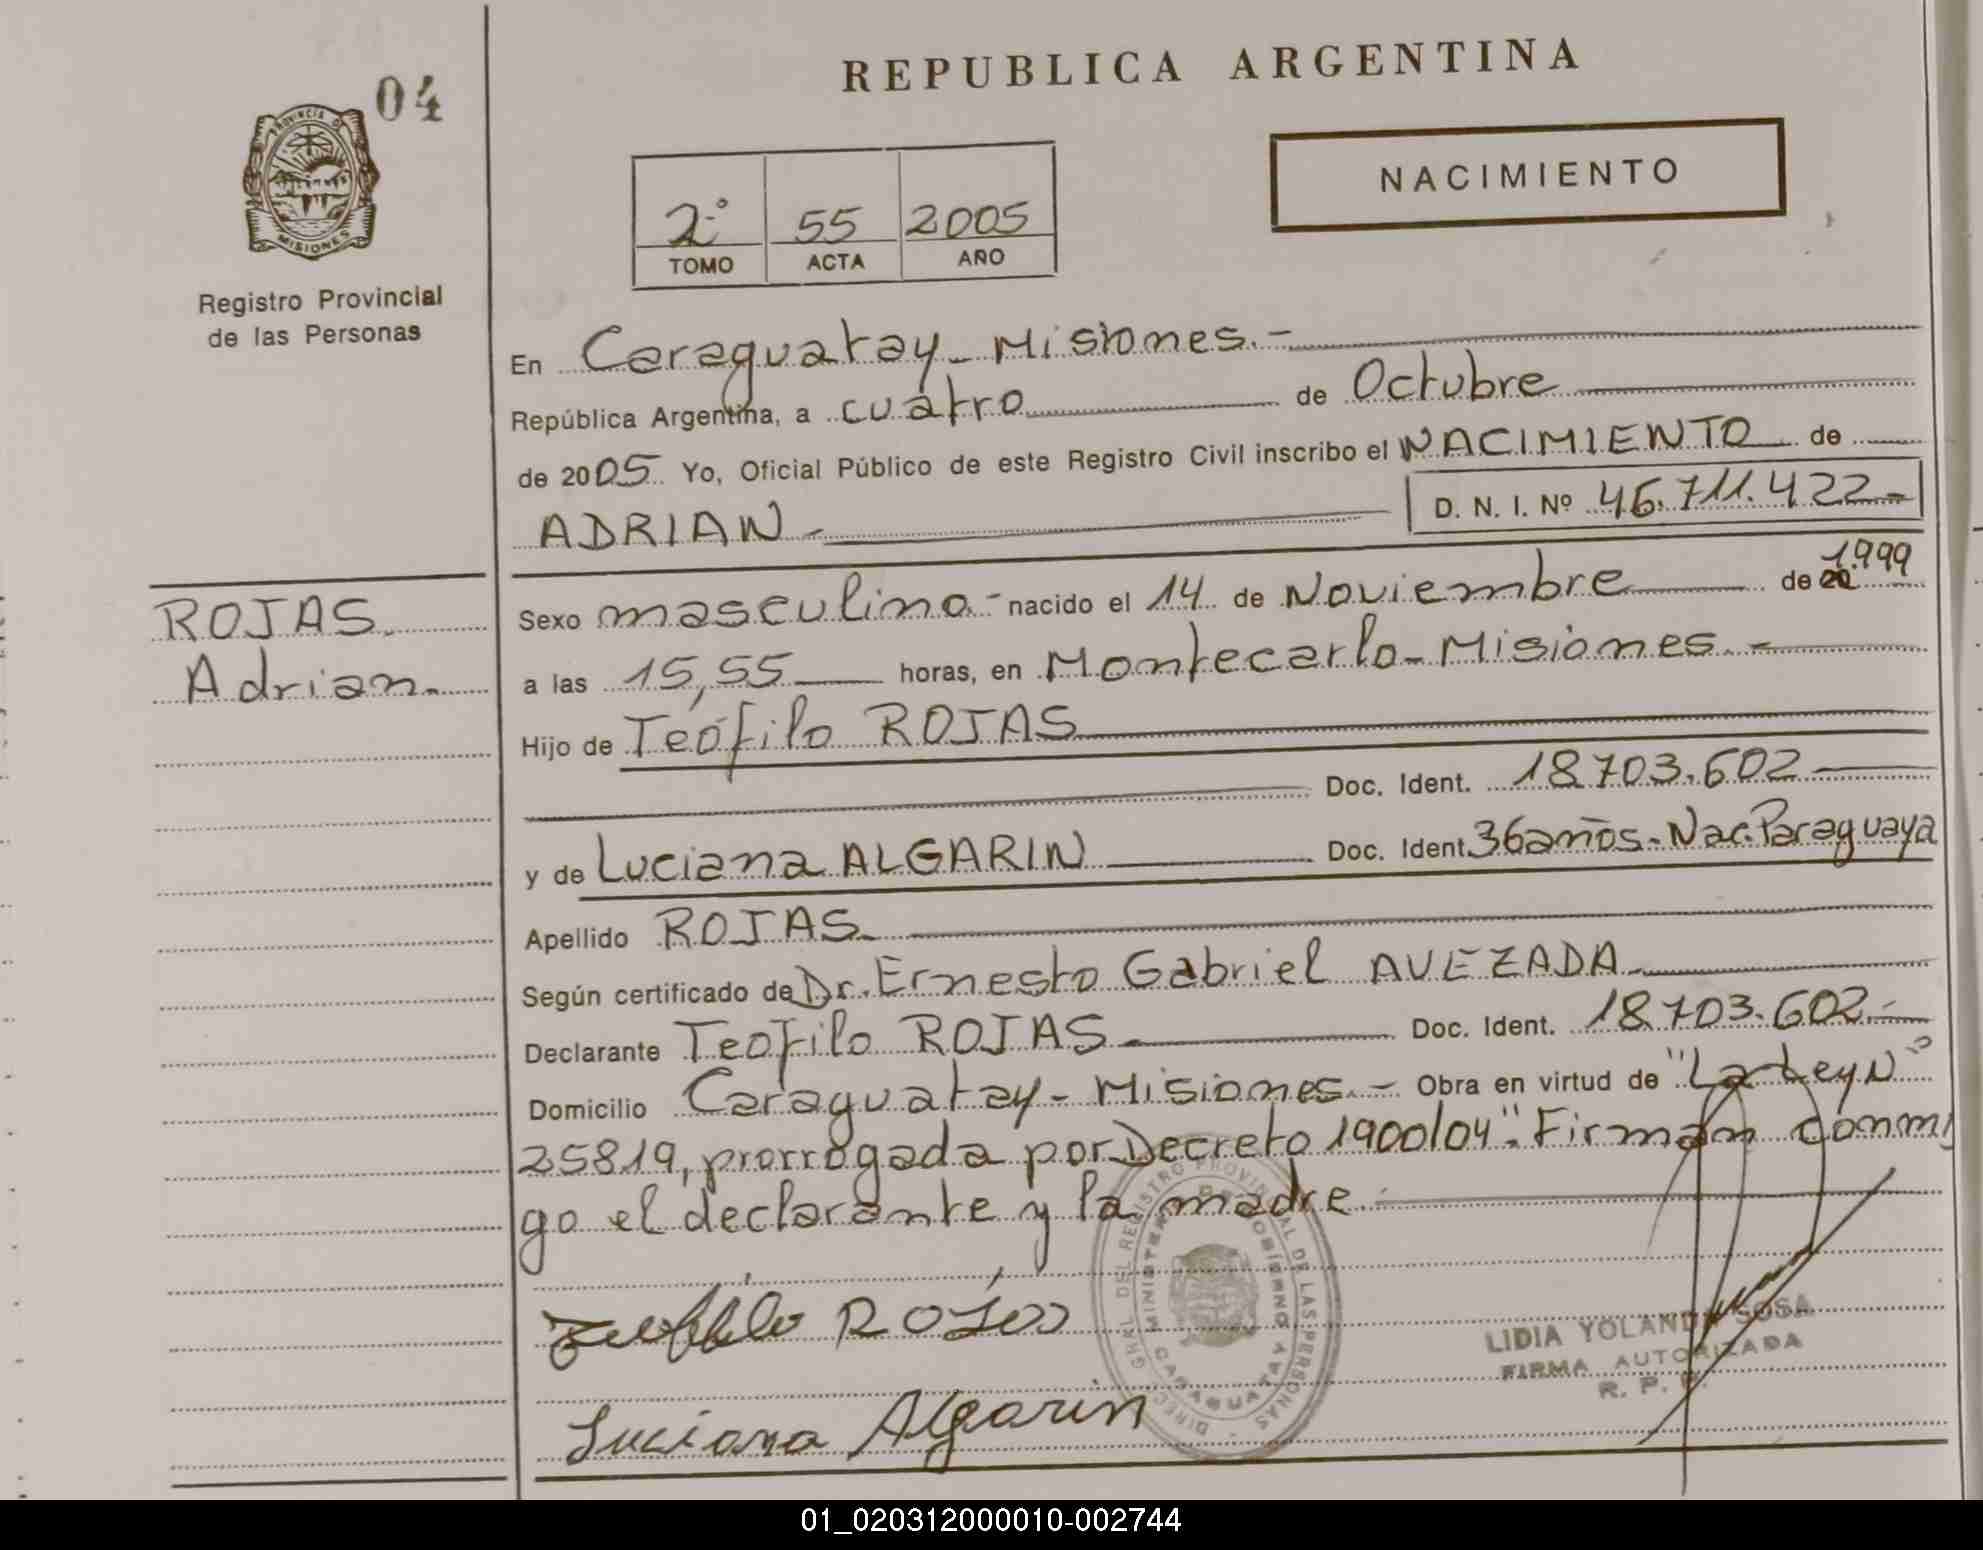 04
REPUBLICA ARGENTINA
PROVINCIA D
MISIONES
Registro Provincial
de las Personas
NACIMIENTO
2º 55 2005
TOMO ACTA AÑO
En Caraguatay - Misiones.-
República Argentina, a cuatro de Octubre
de 2005 Yo, Oficial Público de este Registro Civil inscribo el NACIMIENTO de
ADRIAN - D. N. I. Nº 46.711.422-
ROJAS.
Adrian.
Sexo masculino.- nacido el 14 de Noviembre de 20 1.999
a las 15,55 horas, en Montecarlo - Misiones. -
Hijo de Teófilo ROJAS
Doc. Ident. 18.703.602
y de Luciana ALGARIN Doc. Ident. 36 años - Nac. Paraguaya
Apellido ROJAS.
Según certificado de Dr. Ernesto Gabriel AVEZADA
Declarante Teofilo ROJAS Doc. Ident. 18.703.602.-
Domicilio Caraguatay - Misiones. - Obra en virtud de "La Ley Nº
25819, prorrogada por Decreto 1900/04". Firman conmi
go el declarante y la madre.
Teofilo Rojas
Luciana Algarin
DIRECC. GRAL. DEL REGISTRO PROVINCIAL DE LAS PERSONAS
MINISTERIO DE GOBIERNO
CARAGUATAY
LIDIA YOLANDA SOSA
FIRMA AUTORIZADA
R. P. P.
01_020312000010-002744